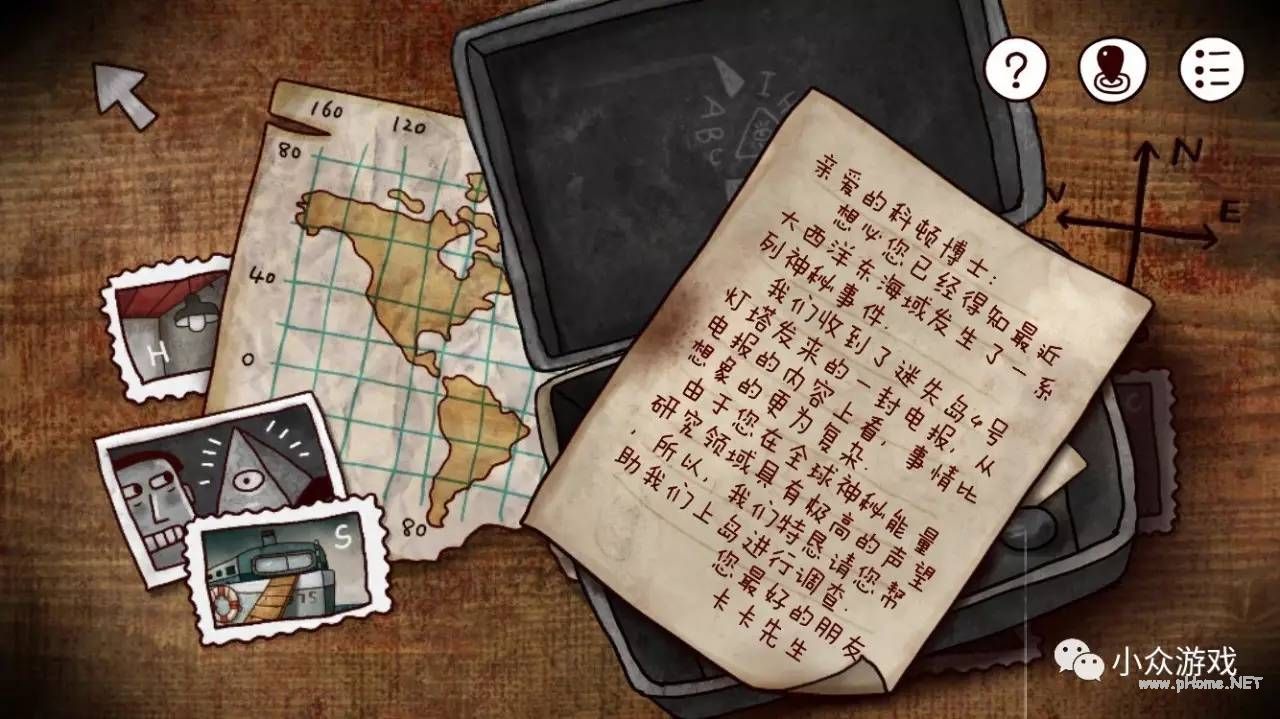 160
120
80
40
0
80
H
S
75
?
N
E
C
I
A
ABC
亲爱的科顿博士：
想必您已经得知最近
大西洋东海域发生了一系
列神秘事件.
我们收到了迷失岛4号
灯塔发来的一封电报，从
电报的内容上看，事情比
想象的更为复杂.
由于您在全球神秘能量
研究领域具有极高的声望
，所以，我们特恳请您帮
助我们上岛进行调查.
您最好的朋友
卡卡先生
小众游戏
www.pHome.NET